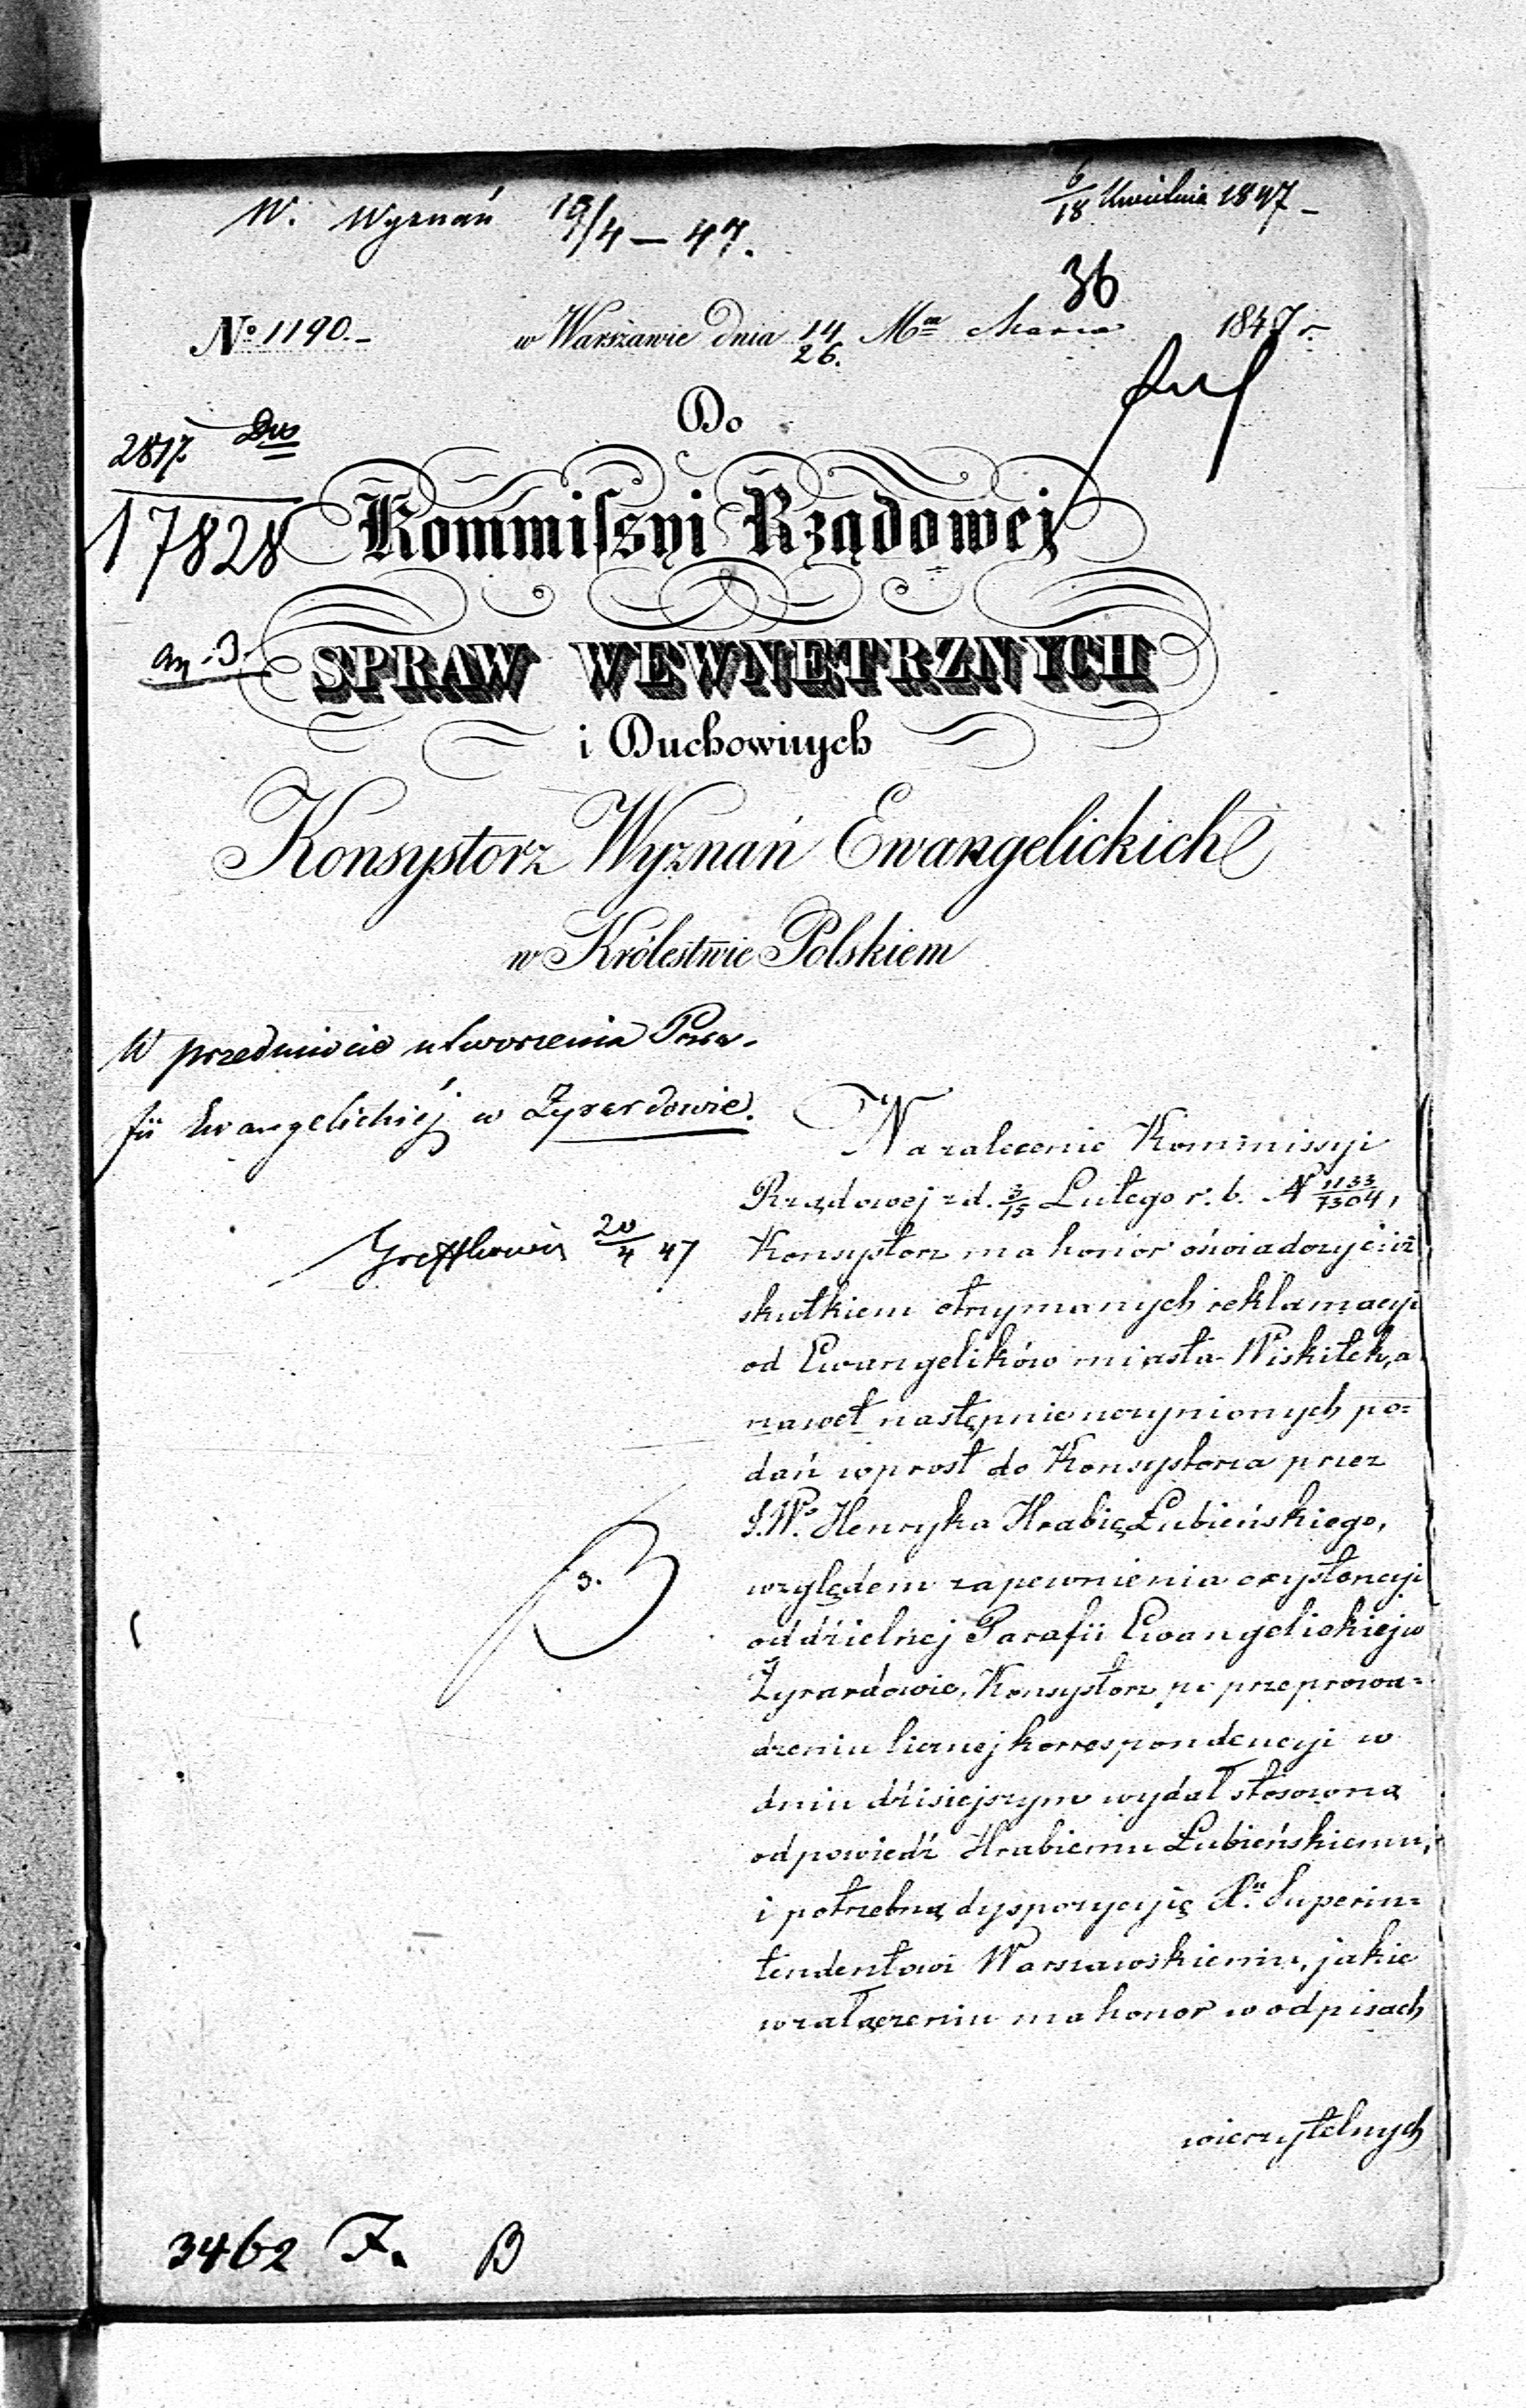 6/18 Kwietnia 1847 –
W. Wyznań 19/4 – 47.
36
No 1190. – w Warszawie dnia 14/26. Mca Marca 1847 r.
Do
2817. Dus
17828
Kommiſsyi Rządowej
an. 3.
SPRAW WEWNĘTRZNYCH
i Duchownych
Konsystorz Wyznań Ewangelickich
w Królestwie Polskiem
W przedmiocie utworzenia Para-
fii Ewangelickiéj w Żyrardowie.
20/4 47
3.
Na zalecenie Kommissyi
Rządowej z d. 3/15 Lutego r. b. N 1133/7304,
Konsystorz ma honor oświadczyć: iż
skutkiem otrzymanych reklamacyi
od Ewangelików miasta Wiskitek, a
nawet następnie uczynionych po=
dań wprost do Konsystorza przez
J.W. Henryka Hrabię Łubieńskiego,
względem zapewnienia exystencyi
oddzielnej Parafii Ewangelickiej w
Żyrardowie, Konsystorz po przeprowa=
dzeniu licznej korrespondencyi w
dniu dzisiejszym wydał stosowną
odpowiedź Hrabiemu Łubieńskiemu,
i potrzebną dyspozycyię Xu. Superin=
tendentowi Warszawskiemu, jakie
w załączeniu ma honor w odpisach
wierzytelnych
3462 F. B